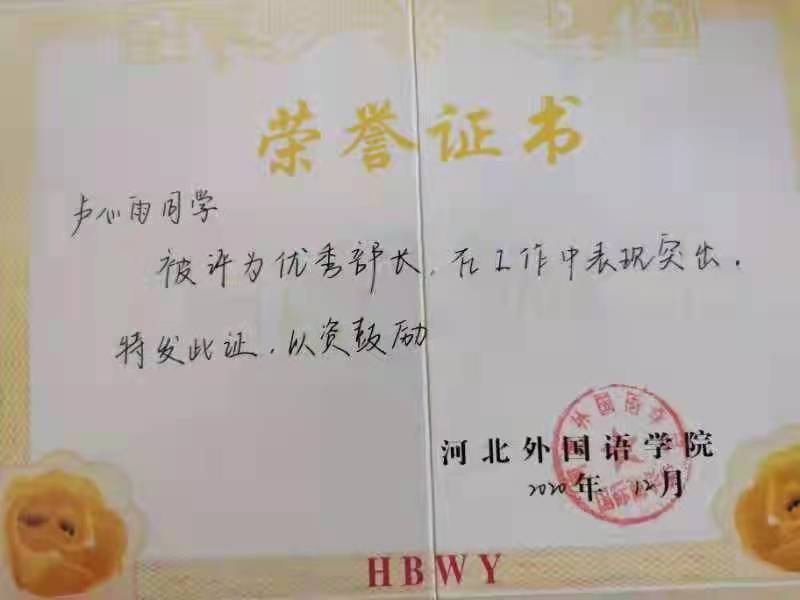 荣誉证书
卢心雨同学
被评为优秀部长，在工作中表现突出．
特发此证，以资鼓励
河北外国语学院
2020年12月
HBWY